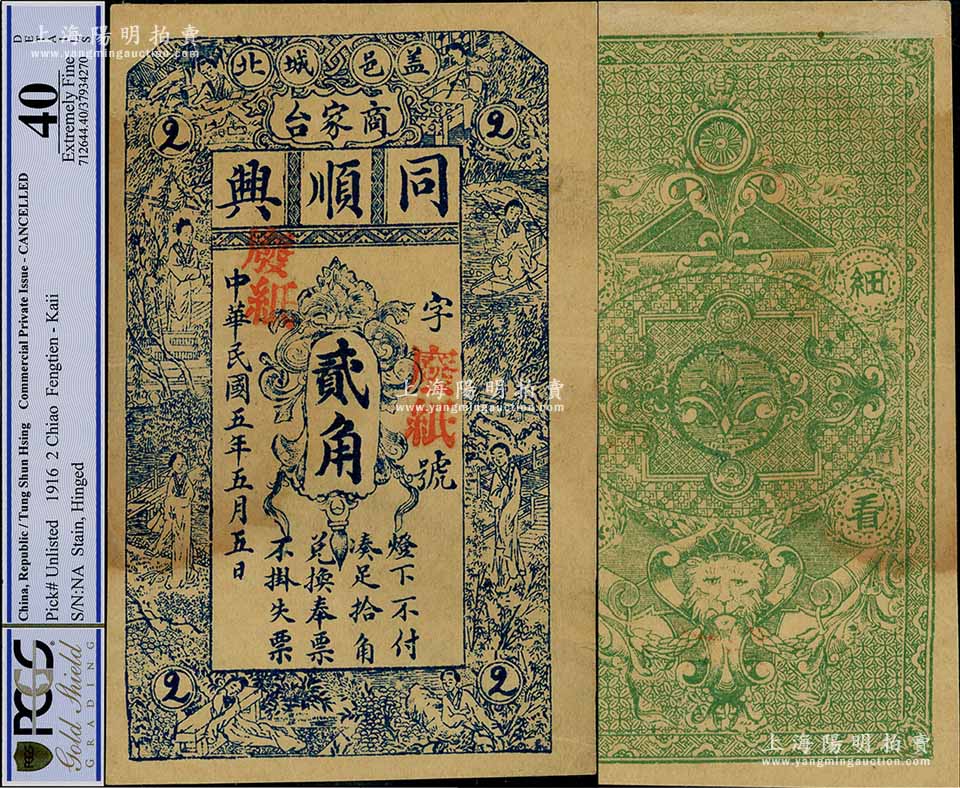 DETAILS
40
Extremely Fine
712644.40/37934270
China, Republic / Tung Shun Hsing Commercial Private Issue - CANCELLED
Pick# Unlisted 1916 2 Chiao Fengtien - Kaii
S/N:NA Stain, Hinged
PCGS
Gold Shield
GRADING
上海陽明拍賣
www.yangmingauction.com
蓋邑城北
商家台
2
2
同順興
字
號
廢紙
廢紙
貳角
中華民國五年五月五日
燈下不付
湊足拾角
兌換奉票
不掛失票
2
2
上海陽明拍賣
www.yangmingauction.com
細
看
上海陽明拍賣
www.yangmingauction.com